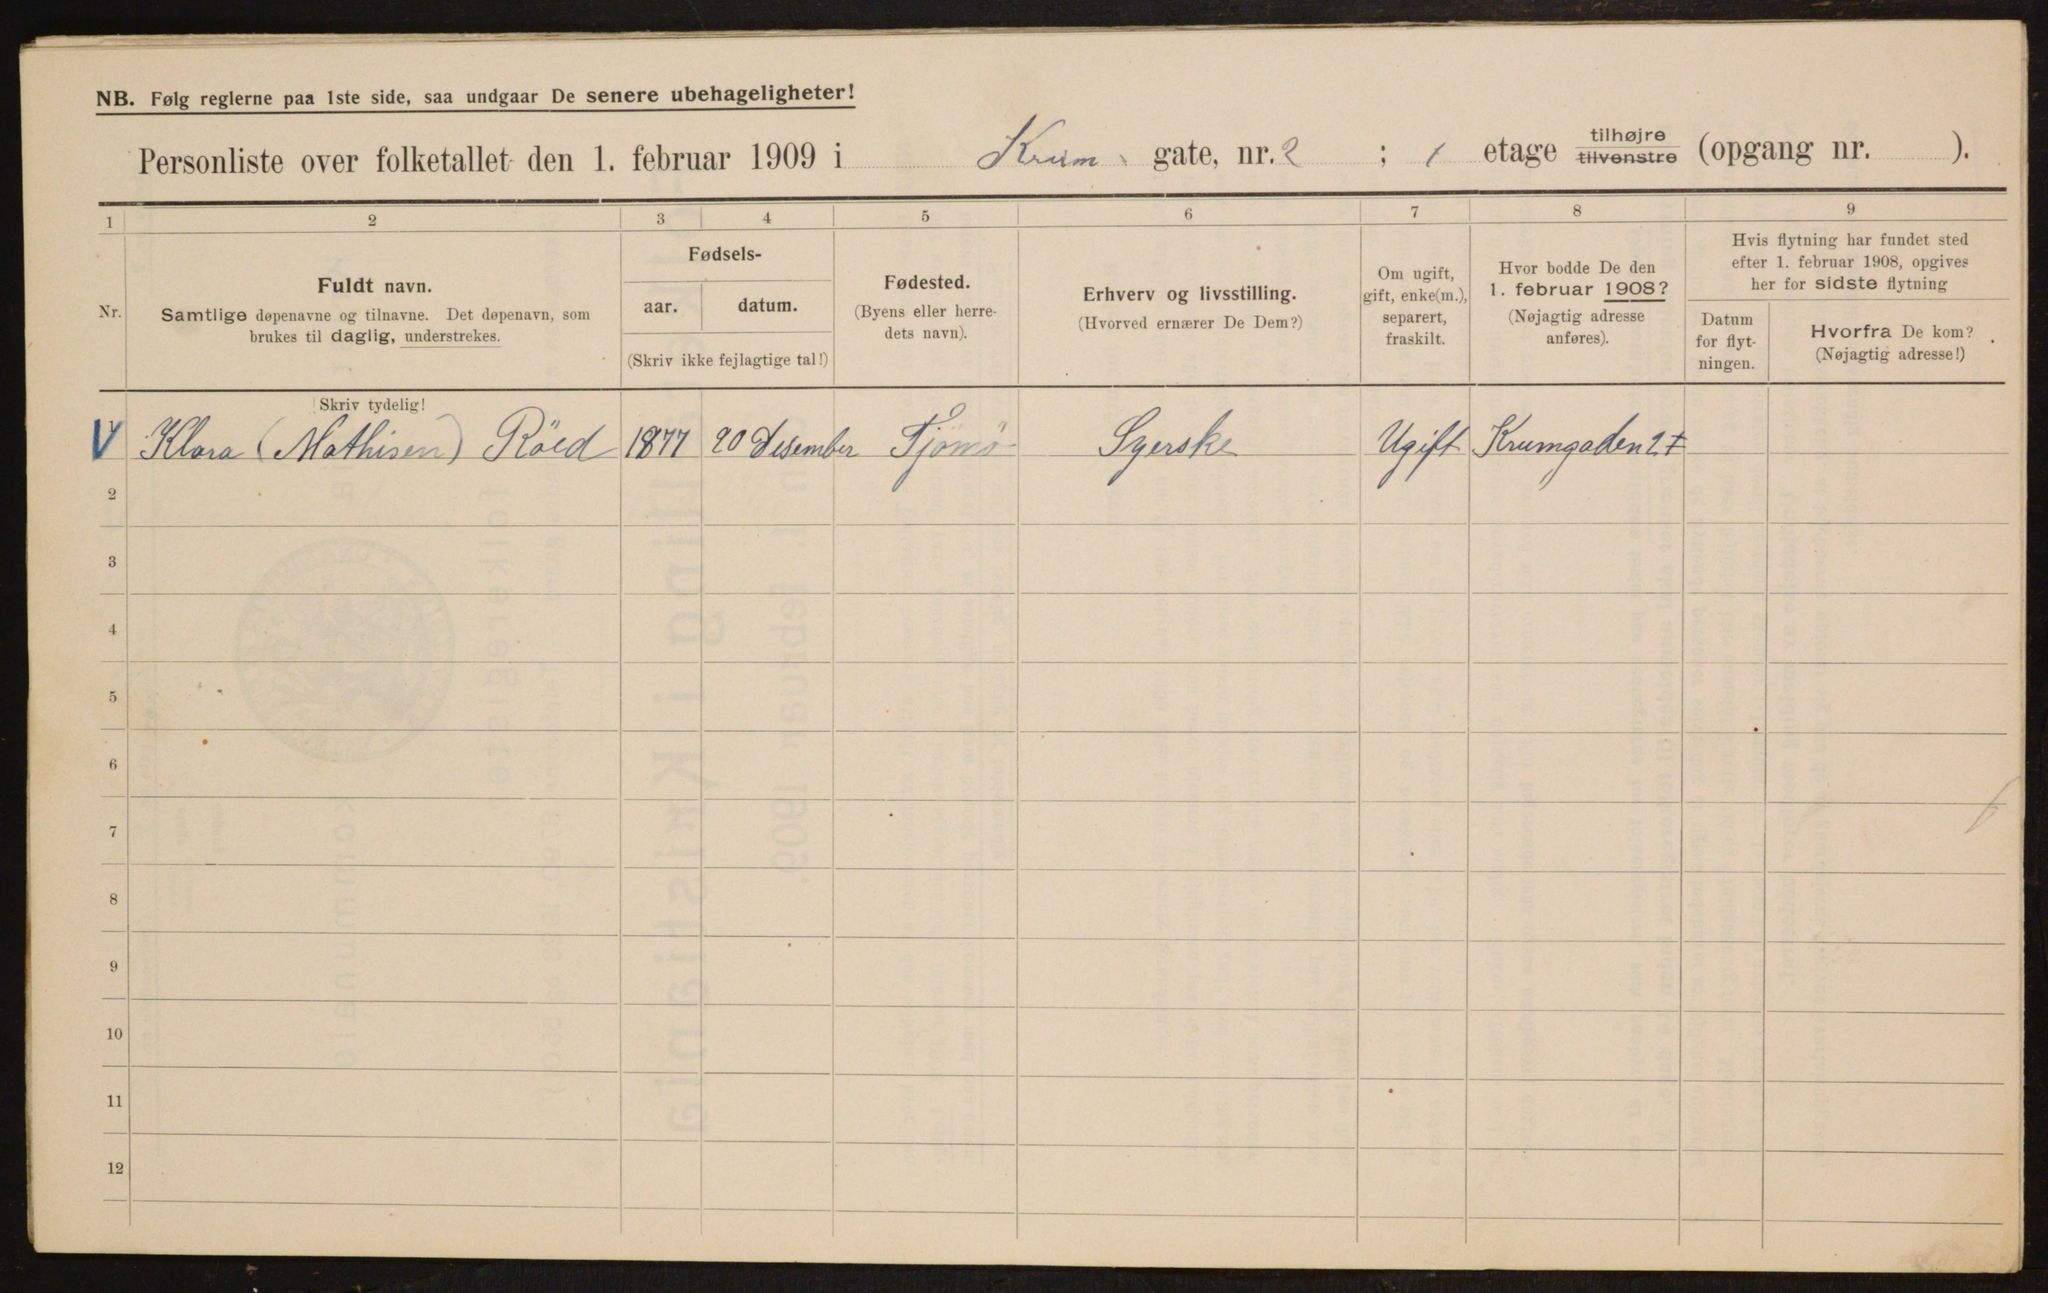 NB. Følg reglerne paa 1ste side, saa undgaar De senere ubehageligheter!
Personliste over folketallet den 1. februar 1909 i Krum gate, nr. 2 ; 1 etage tilhøjre tilvenstre (opgang nr. ).
1 2 3 4 5 6 7 8 9
Nr.
Fuldt navn.
Samtlige døpenavne og tilnavne. Det døpenavn, som
brukes til daglig, understrekes.
Fødsels-
aar. datum.
(Skriv ikke fejlagtige tal!)
Fødested.
(Byens eller herre-
dets navn).
Erhverv og livsstilling.
(Hvorved ernærer De Dem?)
Om ugift,
gift, enke(m.),
separert,
fraskilt.
Hvor bodde De den
1. februar 1908?
(Nøjagtig adresse
anføres).
Hvis flytning har fundet sted
efter 1. februar 1908, opgives
her for sidste flytning
Datum
for flyt-
ningen.
Hvorfra De kom?
(Nøjagtig adresse!)
Skriv tydelig!
Klara (Mathisen) Röed 1877 20 Desember Tjömö Syerske Ugift Krumgaden 2
2
3
4
5
6
7
8
9
10
11
12